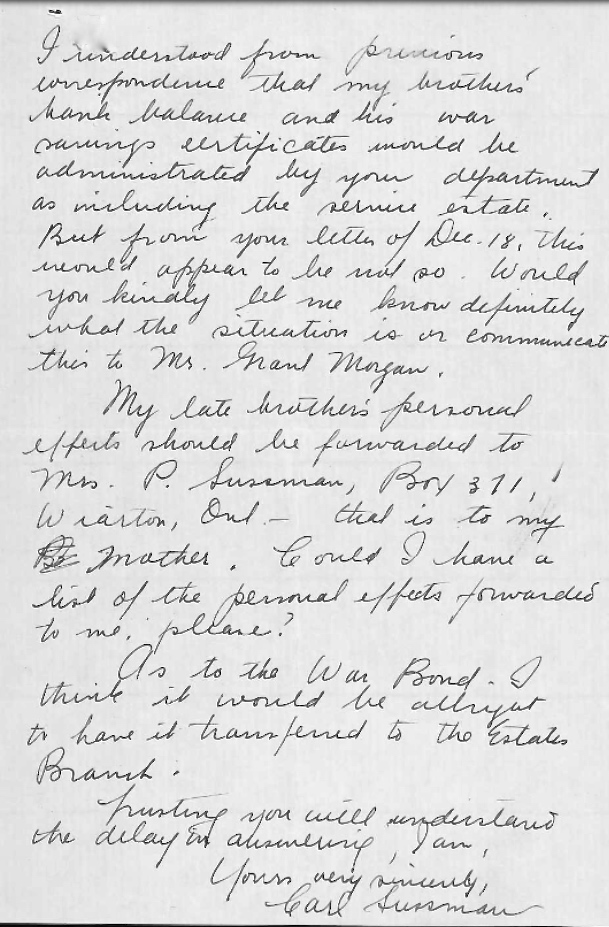 I understood from previous
correspondence that my brothers'
bank balance and his war
savings certificates would be
administrated by your department
as including the service estate.
But from your letter of Dec. 18, this
would appear to be not so. Would
you kindly let me know definitely
what the situation is or communicate
this to Mr. Grant Morgan.
My late brother's personal
effects should be forwarded to
Mrs. P. Sussman, Box 371,
Wiarton, Ont. – that is to my
Mother. Could I have a
list of the personal effects forwarded
to me, please?
As to the War Bond - I
think it would be allright
to have it transferred to the Estates
Branch.
Trusting you will understand
the delay in answering, I am,
Yours very sincerely,
Carl Sussman